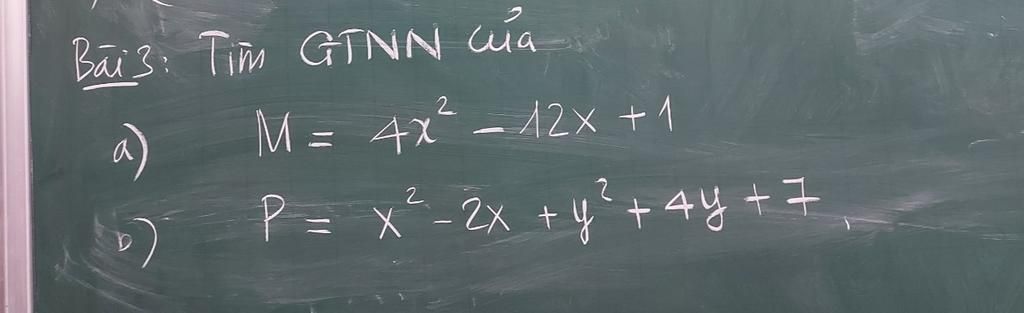 Bài 3: Tìm GTNN của
a) M = 4x² - 12x + 1
b) P = x² - 2x + y² + 4y + 7